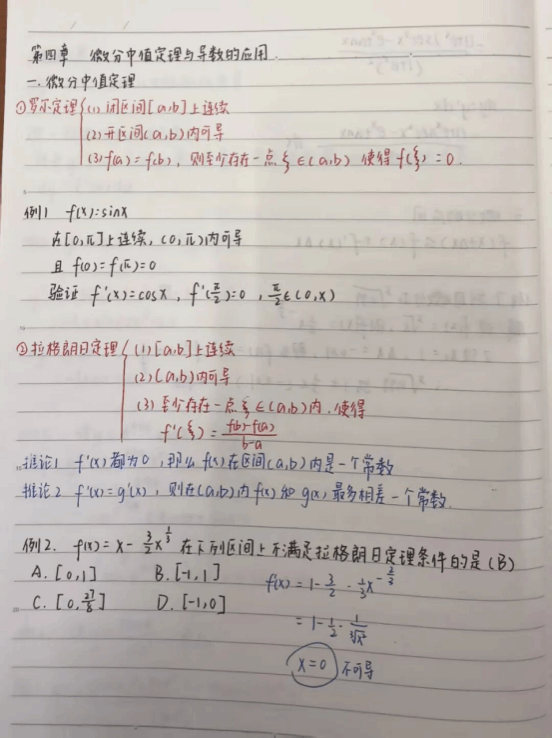 第四章 微分中值定理与导数的应用.
一.微分中值定理
①罗尔定理{(1)闭区间[a,b]上连续
(2)开区间(a,b)内可导
(3)f(a)=f(b),则至少存在一点ξ∈(a,b) 使得f(ξ)=0.
例1 f(x)=sinx
在[0,π]上连续,(0,π)内可导
且 f(0)=f(π)=0
验证 f'(x)=cosx, f'(π/2)=0, π/2∈(0,x)
②拉格朗日定理{(1)[a,b]上连续
(2)(a,b)内可导
(3)至少存在一点ξ∈(a,b)内,使得
f'(ξ)=(f(b)-f(a))/(b-a)
推论1 f'(x)都为0,那么f(x)在区间(a,b)内是一个常数
推论2 f'(x)=g'(x),则在(a,b)内f(x)和g(x)最多相差一个常数.
例2. f(x)=x-3/2x^(1/3) 在下列区间上不满足拉格朗日定理条件的是(B)
A.[0,1] B.[-1,1] f(x)=1-3/2·1/3x^(-2/3)
C.[0,27/8] D.[-1,0] =1-1/2·1/∛x²
x=0 不可导